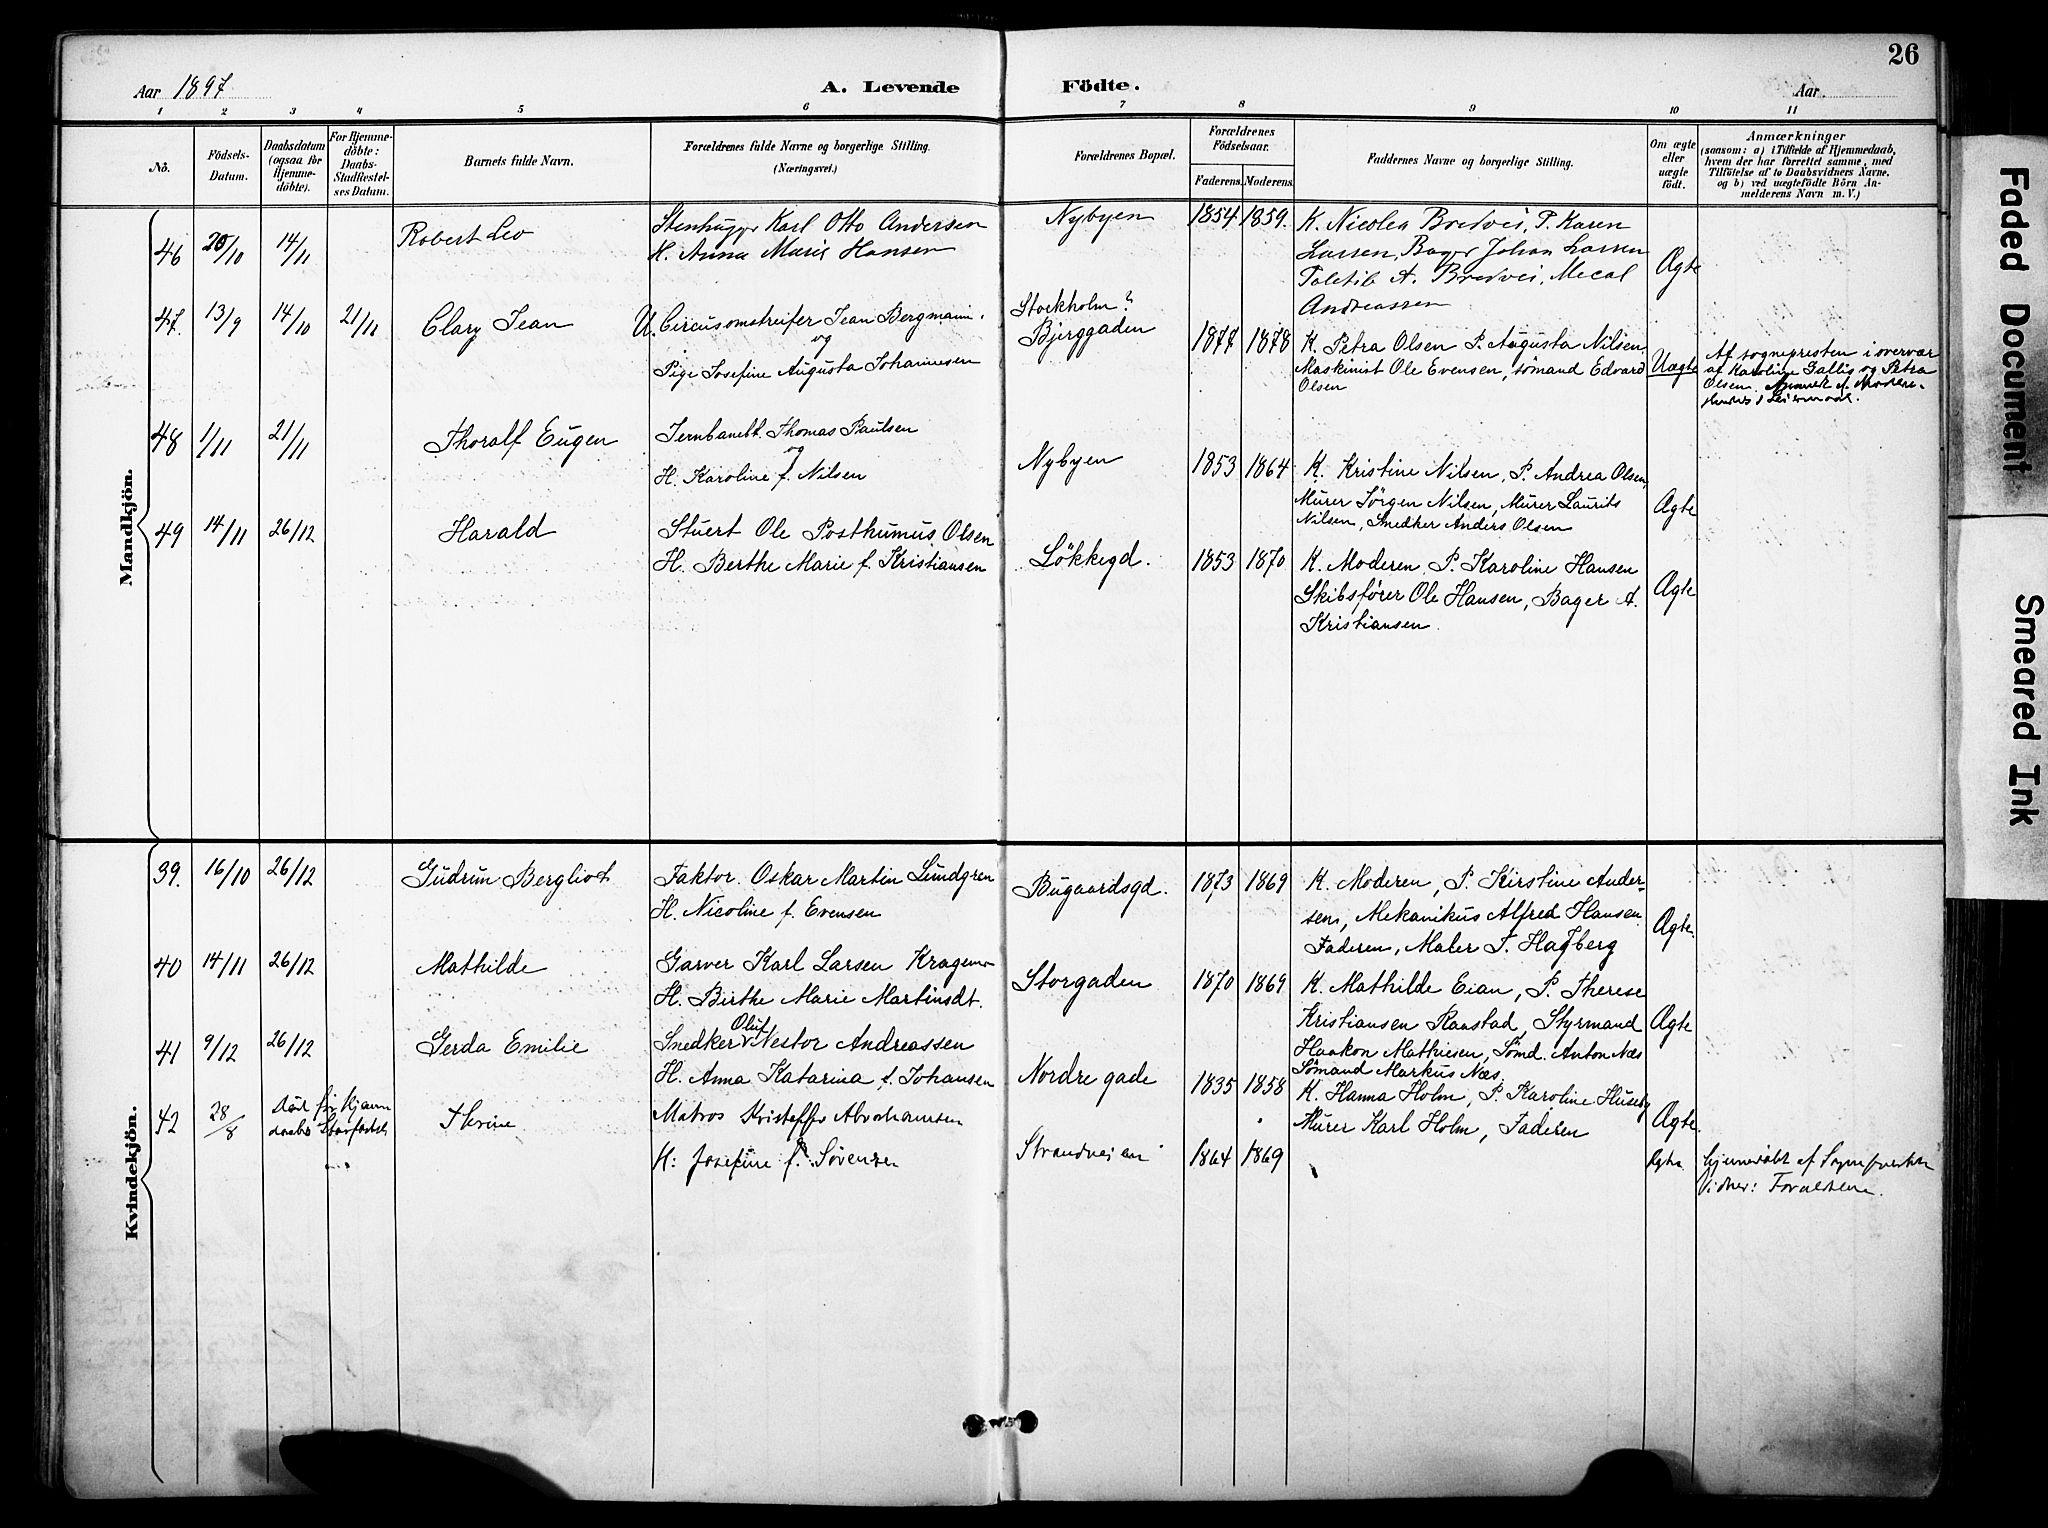 26
Aar 1897
A. Levende Födte.
Aar
1 2 3 4 5 6 7 8 9 10 11
No.
Födsels-Datum.
Daabsdatum (ogsaa for Hjemmedöbte).
For Hjemmedöbte: Daabs-Stadfæstelses Datum.
Barnets fulde Navn.
Forældrenes fulde Navne og borgerlige Stilling.
(Næringsvei.)
Forældrenes Bopæl.
Forældrenes Födselsaar.
Faderens. Moderens.
Faddernes Navne og borgerlige Stilling.
Om ægte eller uægte födt.
Anmærkninger
(saasom: a) i Tilfælde af Hjemmedaab,
hvem der har forrettet samme, med
Tilföielse af to Daabsvidners Navne.
og b) ved uægtefödte Börn An-
melderens Navn m. V.)
Mandkjön.
46 20/10 14/11 Robert Leo
Stenhugger Karl Otto Andersen
H. Anna Marie Hansen
Nybyen 1854 1859.
K. Nicolea Bredvei, P. Karen
Larsen, Bager Johan Larsen
A. Bredvei,
Andreassen
Ægte
47. 13/9 14/10 21/11 Clary Jean
U. Circusomstreifer Jean Bergmann.
og
Pige Josefine Augusta Johannesen
Stockholm?
Bjerggaden 1877 1878
K. Petra Olsen P. Augusta Nilsen,
Maskinist Ole Evensen, sömand Edvard
Olsen
Uægte
Af sognepresten i overvær
af Karoline Gallis og Petra
Olsen.
48 1/11 21/11 Thoralf Eugen
Jernbanebt. Thomas Paulsen
og
H. Karoline f. Nilsen
Nybyen 1853 1864
K. Kristine Nilsen, P. Andrea Olsen,
Murer Jörgen Nilsen, Murer Laurits
Nilsen, Snedker Anders Olsen
Ægte
49 14/11 26/12 Harald
Stuert Ole Posthumus Olsen
H. Berthe Marie f. Kristiansen
Lökkegd. 1853 1870
K. Moderen, P. Karoline Hansen
Skibsförer Ole Hansen, Bager A.
Kristiansen.
Ægte
Kvindekjön.
39. 16/10 26/12 Gudrun Bergliot
Faktor. Oskar Martin Lundgren
H. Nicoline f. Evensen
Bugaardsgd. 1873 1869
K. Moderen, P. Kirstine Ander-
sen, Mekanikus Alfred Hansen
Faderen, Maler T. Hagberg
Ægte.
40 14/11 26/12 Mathilde
Garver Karl Larsen
H. Birthe Marie Martinsdt.
Storgaden 1870 1869
K. Mathilde Eian, P. Therese
Kristiansen Raastad, Styrmand
Haakon Mathiesen, Sömd. Anton Næs
Sömand Markus Næs.
Ægte
41 9/12 26/12 Gerda Emilie
Snedker Oluf Nestor Andreassen
H. Anna Katarina f. Johansen
Nordre gade 1835 1858
K. Hanna Holm, P. Karoline Huseby
Murer Karl Holm, Faderen
Ægte.
42 28/8 Död för
Matros Kristoffer Abrahamsen
H: Josefine f. Sörensen
Strandveien 1864 1869
Ægte
hjemmedöbt af Sognepresten
Vidner: Forældrene.
Faded Document
Smeared Ink